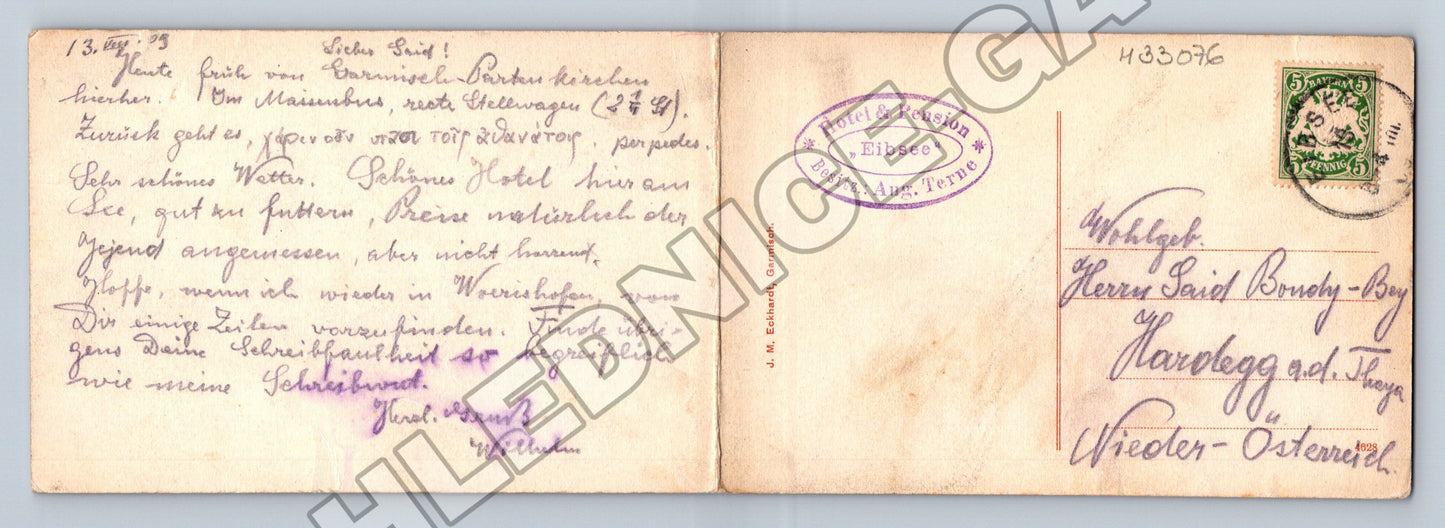 13. 09
Lieber Said!
Heute früh von Garmisch-Partenkirchen
hierher. Im Maisenbus, recte Stellwagen (2¼ St).
Zurück geht es, τοῖς ἀθανάτοις. per pedes.
Sehr schönes Wetter. Schönes Hotel hier am
See, gut zu futtern, Preise natürlich der
Jejend angemessen, aber nicht horrend.
Hoffe, wenn ich wieder in Woerishofen, von
Dir einige Zeilen vorzufinden. Finde übri-
gens Deine Schreibfaulheit so begreiflich
wie meine Schreibwut.
Herzl. Gruß
Wilhelm
Hotel & Pension
„Eibsee“
* Besitz.: Aug. Terne *
J. M. Eckhardt, Garmisch.
433076
BAYERN
5 5
5 PFENNIG 5
Wohlgeb.
Herrn Said Bondy-Bey
Hardegg a.d. Thaya
Nieder-Österreich
4628
HLEDNICE-GA